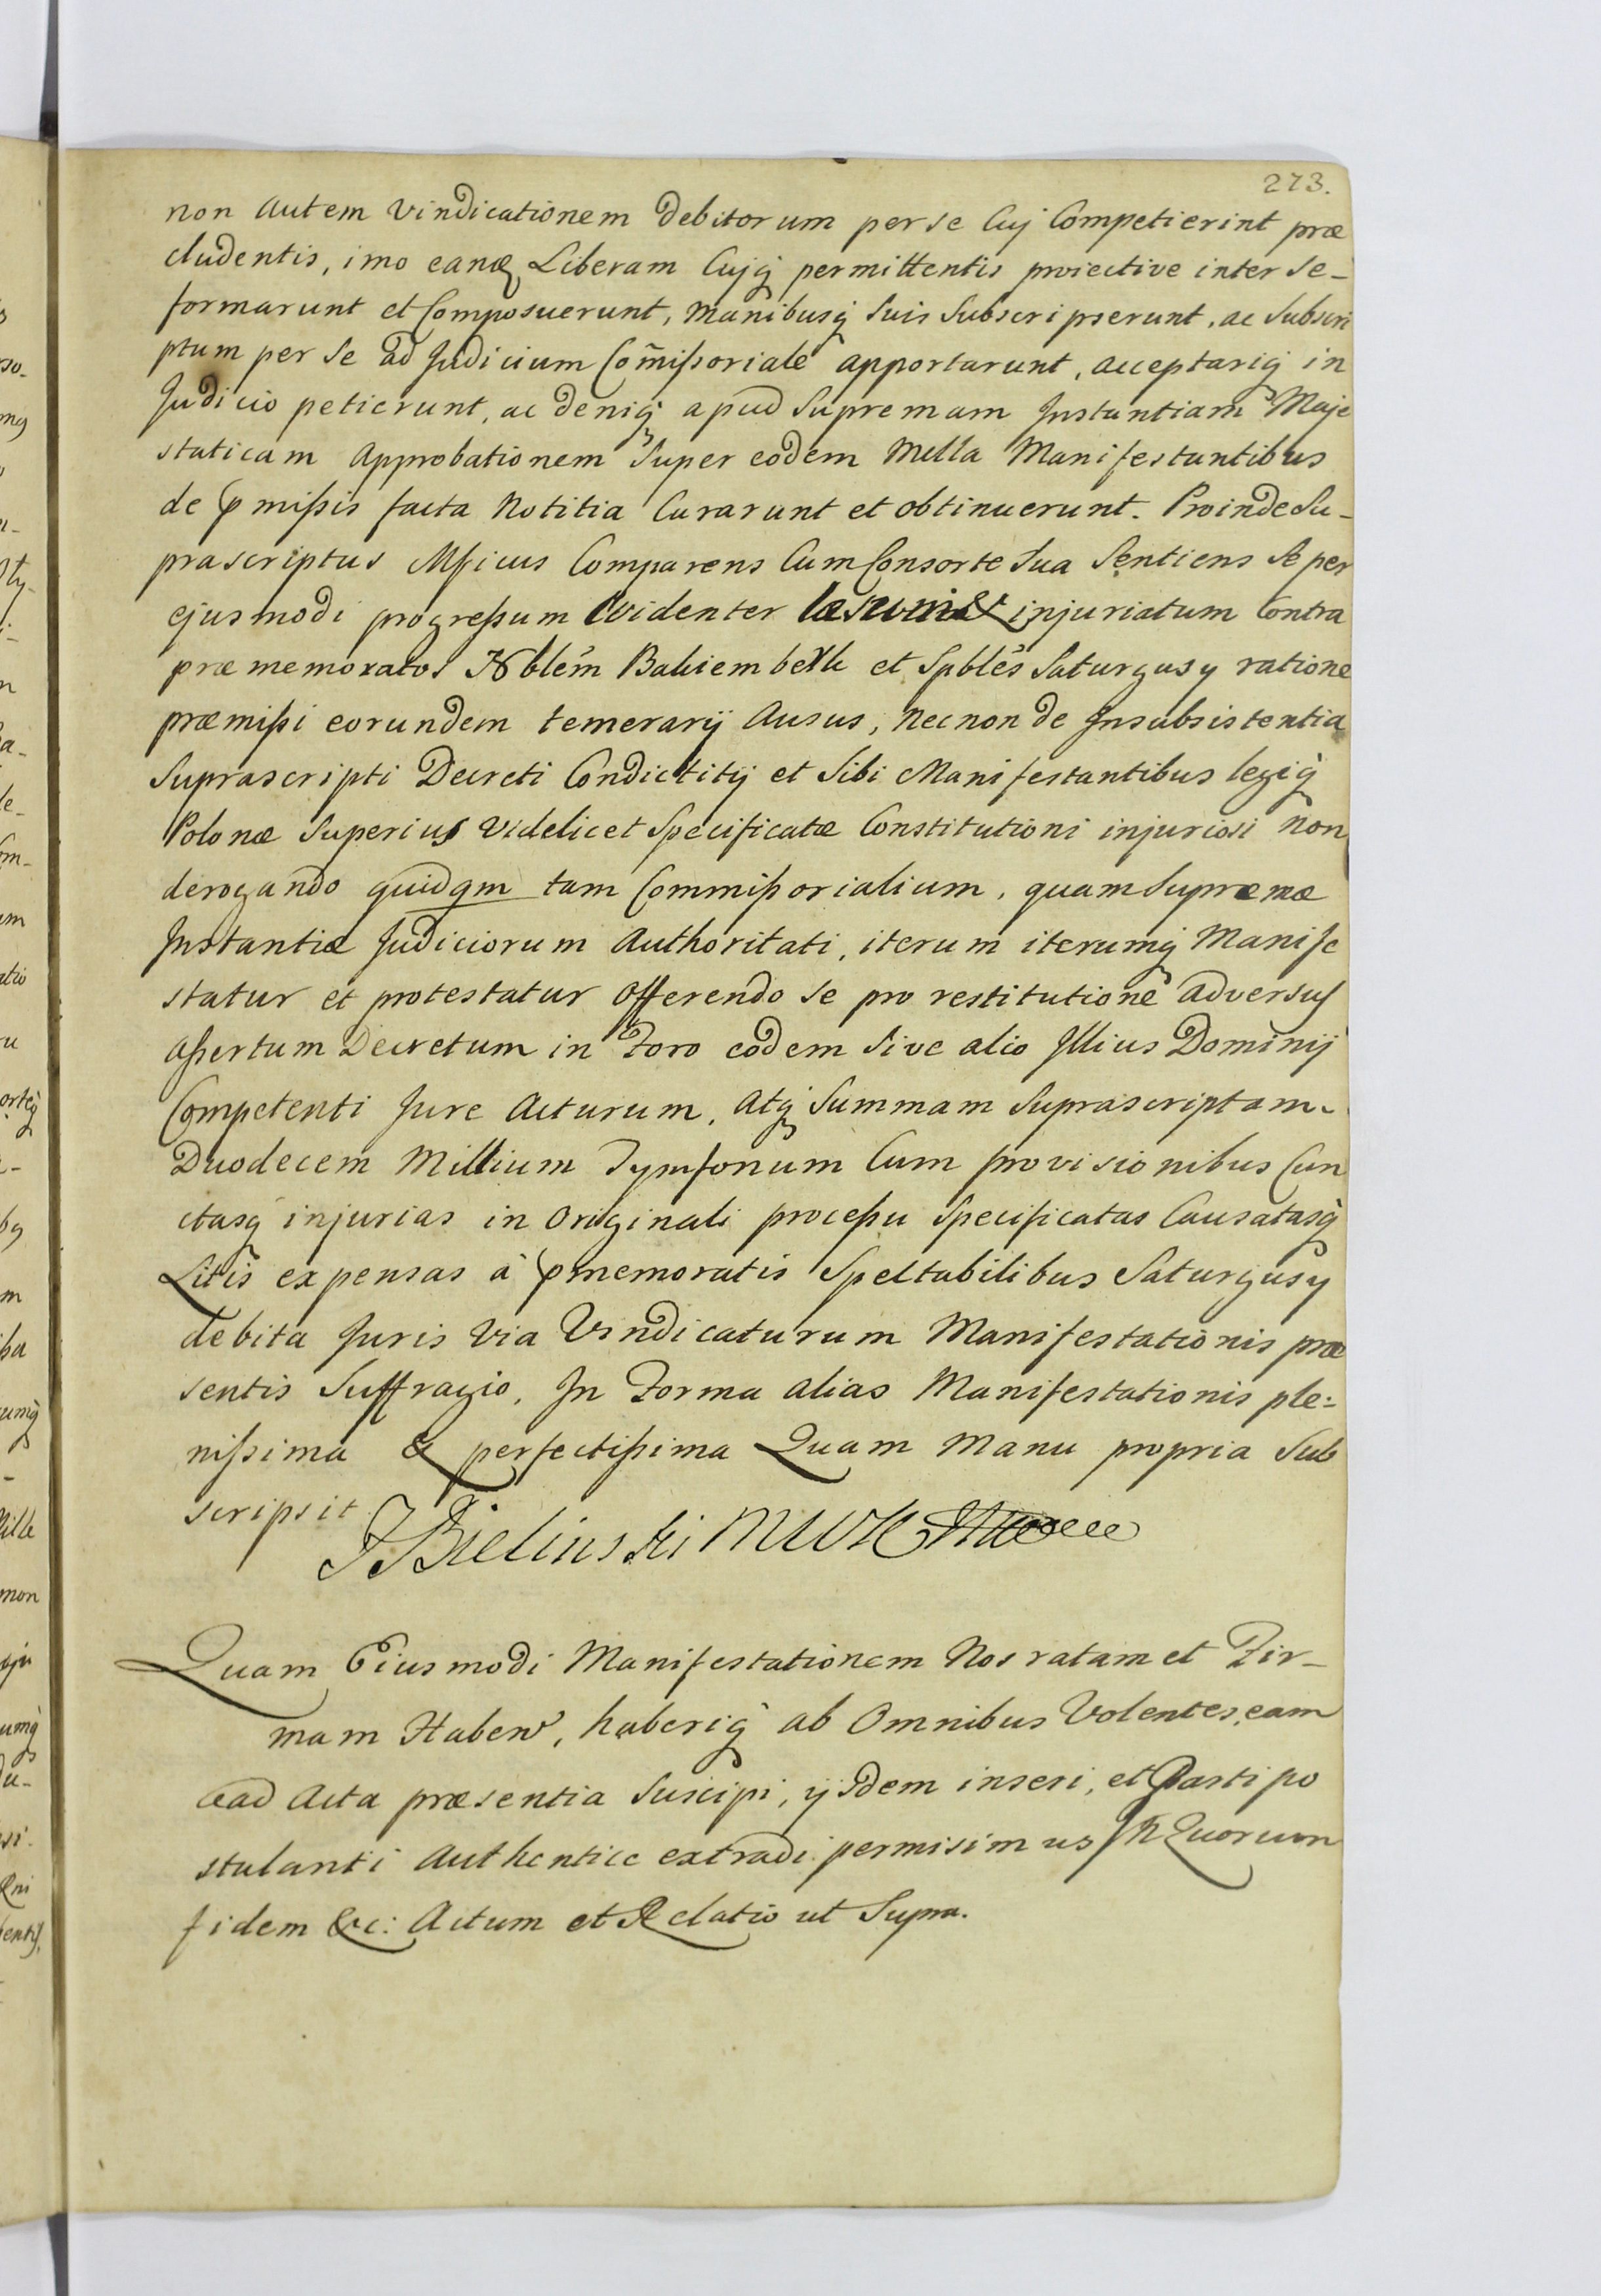 273.
non autem vindicationem debitorum per se Cuj Competierint præ
cludentis, imo eanq Liberam Cujq permittentis proiective inter se-
formarunt et Composuerunt, manibusq suis subscripserunt, ac subscri
ptum per se ad Judicium Com̃ißoriale apportarunt, acceptariq in
Judicio petierunt, ac deniq apud Supremam Instantiam Maje
staticam Approbationem Super eodem Nulla Manifestantibus
de pmißis facta Notitia Curarunt et obtinuerunt. Proinde Su-
prascriptus Mficus Comparens Cum Consorte Sua Sentiens se per
ejusmodi progreßum Evidenter læsum & injuriatum Contra
præmemoratos Nblem et Spbles Saturgusy ratione
præmißi eorundem temerarij Ausus, necnon de Insubsistentia
Suprascripti Decreti Condictitij et Sibi Manifestantibus legiq
Polonæ Superius videlicet Specificatæ Constitutioni injuriosi non
derogando quidqm tam Commißorialium, quam Supremæ
Instantiæ Judiciorum Authoritati, iterum iterumq Manife
statur et protestatur Offerendo se pro restitutione adversus
aßertum Decretum in Foro eodem sive alio Illius Dominij
Competenti Jure Acturum, Atq Summam Suprascriptam
Duodecem Millium Tymfonum Cum provisionibus Cun
ctasq injurias in Originali proceßu Specificatas Causatasq
Litis expensas à pmemoratis Spectabilibus Saturgusy
debita Juris Via Vindicaturum Manifestationis præ
sentis Suffragio, In Forma alias Manifestationis ple:
nißima & perfectißima Quam Manu propria Sub
scripsit JBielinski MWK
Quam Eiusmodi Manifestationem Nos ratam et Fir-
mam Haben, haberiq ab Omnibus Volentes, eam
ad Acta præsentia Suscipi, ijsdem inseri, et Parti po
stulanti Authentice extradi permisimus In Quorum
fidem &c: Actum et Relatio ut Supra.